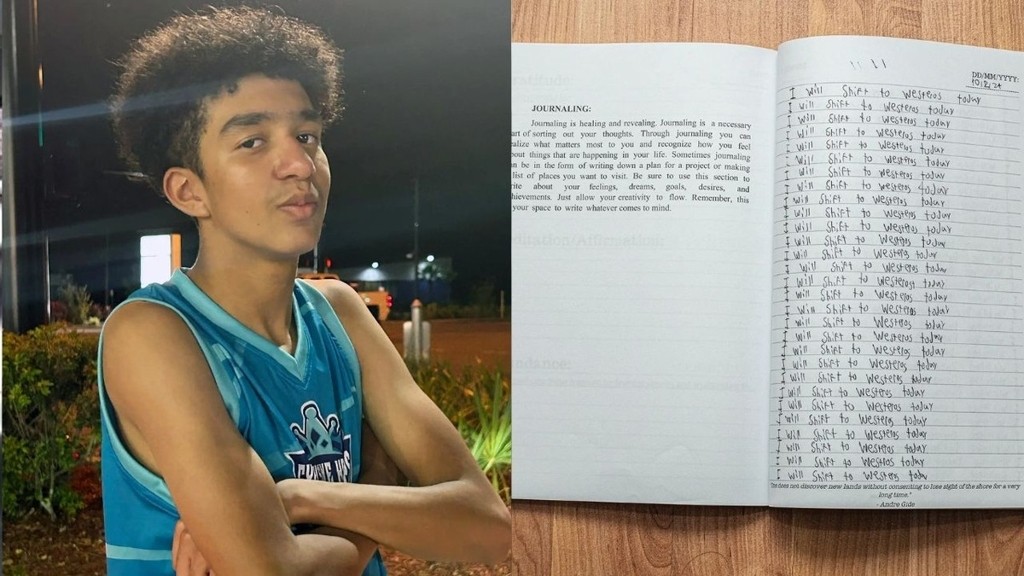 JOURNALING:
Journaling is healing and revealing. Journaling is a necessary
art of sorting out your thoughts. Through journaling you can
ealize what matters most to you and recognize how you feel
bout things that are happening in your life. Sometimes journaling
n be in the form of writing down a plan for a project or making
list of places you want to visit. Be sure to use this section to
rite about your feelings, dreams, goals, desires, and
hievements. Just allow your creativity to flow. Remember, this
your space to write whatever comes to mind.
DD/MM/YYYY:
10/2/24
I will shift to Westeros today
I will shift to Westeros today
I will shift to Westeros today
I will shift to Westeros today
I will shift to Westeros today
I will shift to Westeros today
I will shift to Westeros today
I will shift to Westeros today
I will shift to Westeros today
I will shift to Westeros today
I will shift to Westeros today
I will shift to Westeros today
I will shift to Westeros today
I will shift to Westeros today
I will shift to Westeros today
I will shift to Westeros today
I will shift to Westeros today
I will shift to Westeros today
I will shift to Westeros today
I will shift to Westeros today
I will shift to Westeros today
I will shift to Westeros today
I will shift to Westeros today
I will shift to Westeros today
I will shift to Westeros today
I will shift to Westeros today
I will shift to Westeros today
I will shift to Westeros today
I will shift to Westeros today
does not discover new lands without consenting to lose sight of the shore for a very
long time."
- Andre Gide